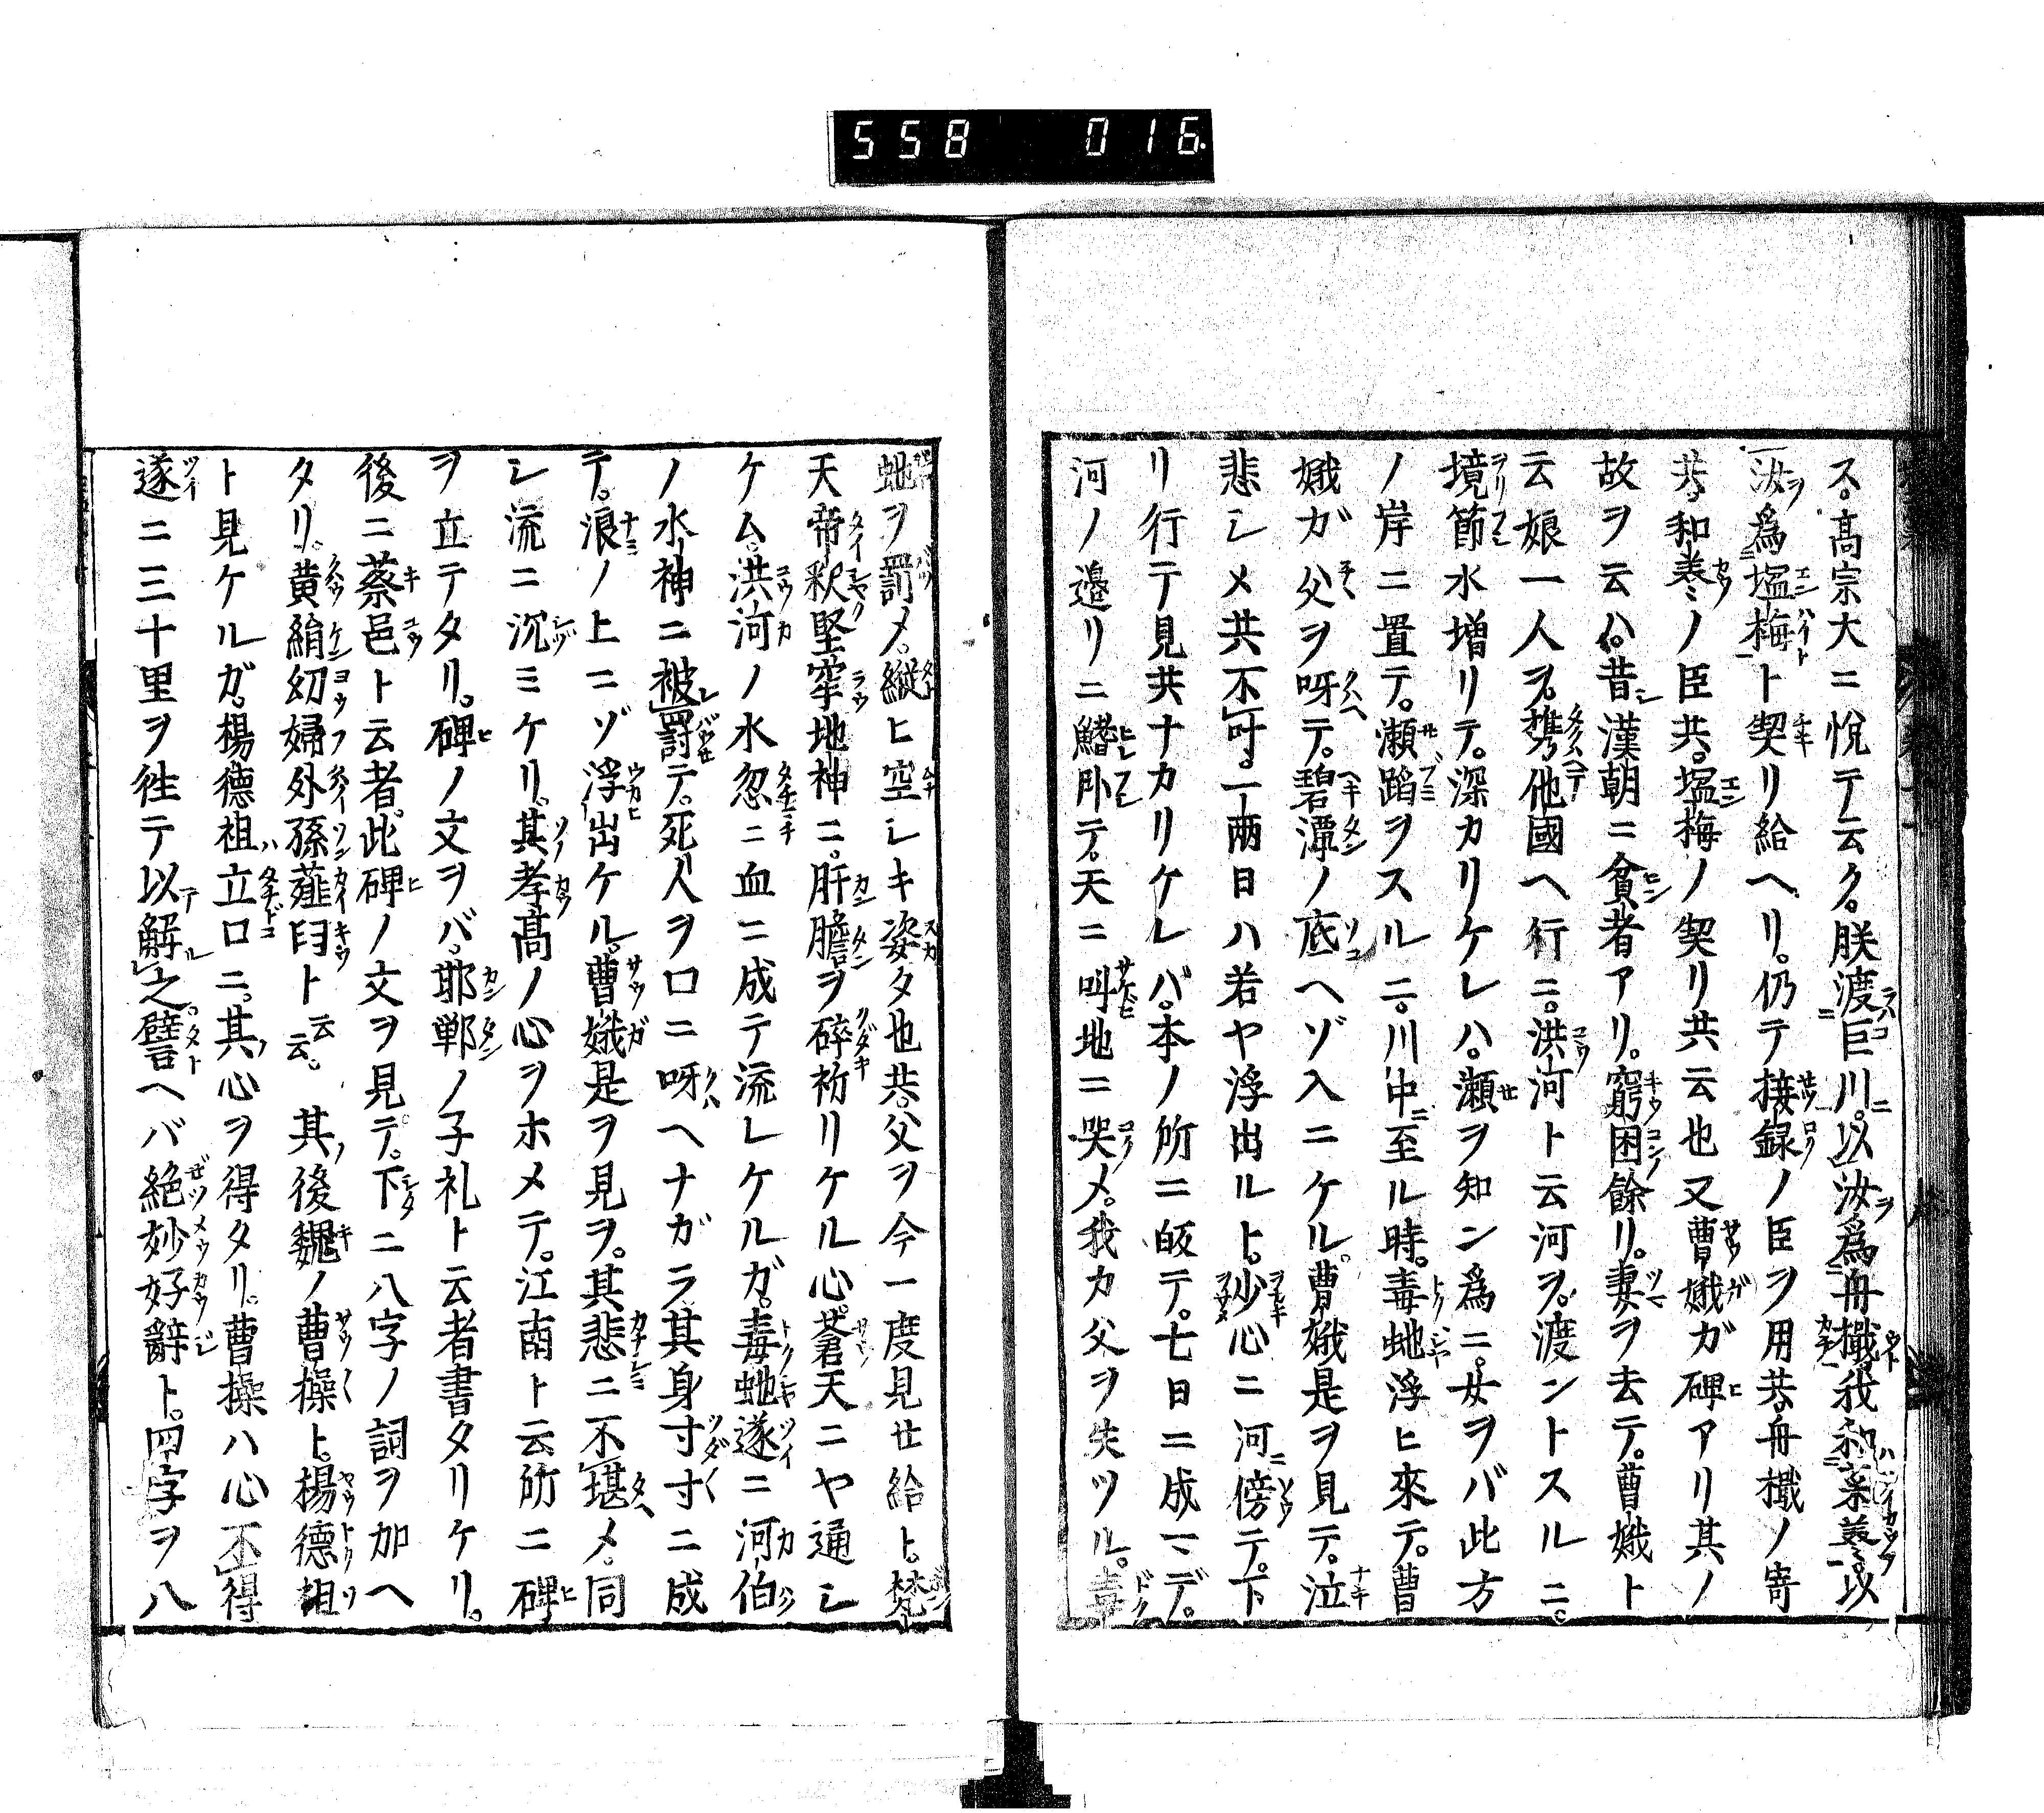 558 016
ス。高宗大ニ悦テ云ク。朕渡巨川。以汝爲舟檝。我和羹。以
汝爲塩梅ト契リ給ヘリ。仍テ接録ノ臣ヲ用共。舟檝ノ寄
共。和羹ノ臣共。塩梅ノ契リ共云也又曹娥ガ碑アリ其ノ
故ヲ云ハ。昔シ漢朝ニ貧者アリ。窮困餘リ。妻ヲ去テ。曹娥ト
云娘一人ヲ。携他國ヘ行ニ。洪河ト云河ヲ。渡ントスルニ。
境節水増リテ。深カリケレハ。瀬ヲ知ン爲ニ。女ヲバ此方
ノ岸ニ置テ。瀬蹈ヲスルニ。川中ニ至ル時。毒虵浮ヒ來テ。曹
娥ガ父ヲ呀テ。碧潭ノ底ヘゾ入ニケル。曹娥是ヲ見テ。泣
悲シメ共不叶。一兩日ハ若ヤ浮出ルト。少心ニ河ニ傍テ。下
リ行テ見共ナカリケレバ。本ノ所ニ皈テ。七日ニ成マデ。
河ノ邉リニ鰭卧テ。天ニ叫地ニ哭メ。我カ父ヲ失ツル。毒
虵ヲ罰メ。縦ヒ空シキ姿タ也共。父ヲ今一度見セ給ト。梵
天帝釈堅牢地神ニ。肝膽ヲ碎祈リケル心。蒼天ニヤ通シ
ケム。洪河ノ水忽ニ血ニ成テ流レケルガ。毒虵遂ニ河伯
ノ水神ニ被罸テ。死人ヲ口ニ呀ヘナガラ。其身寸寸ニ成
テ。浪ノ上ニゾ浮出ケル。曹娥是ヲ見ヲ。其悲ニ不堪メ。同
シ流ニ沉ミケリ。其孝髙ノ心ヲホメテ。江南ト云所ニ碑
ヲ立テタリ。碑ノ文ヲバ。耶鄲ノ子礼ト云者書タリケリ。
後ニ蔡邕ト云者。此碑ノ文ヲ見テ。下ニ八字ノ詞ヲ加ヘ
タリ。黄絹幼婦外孫薤臼ト云云。其後魏ノ曹操ト。楊德祖
ト見ケルガ。楊德祖ハ立口ニ。其心ヲ得タリ。曹操ハ心不得
遂ニ三十里ヲ徃テ以解之。譬ヘバ絶妙好辭ト。四字ヲ八